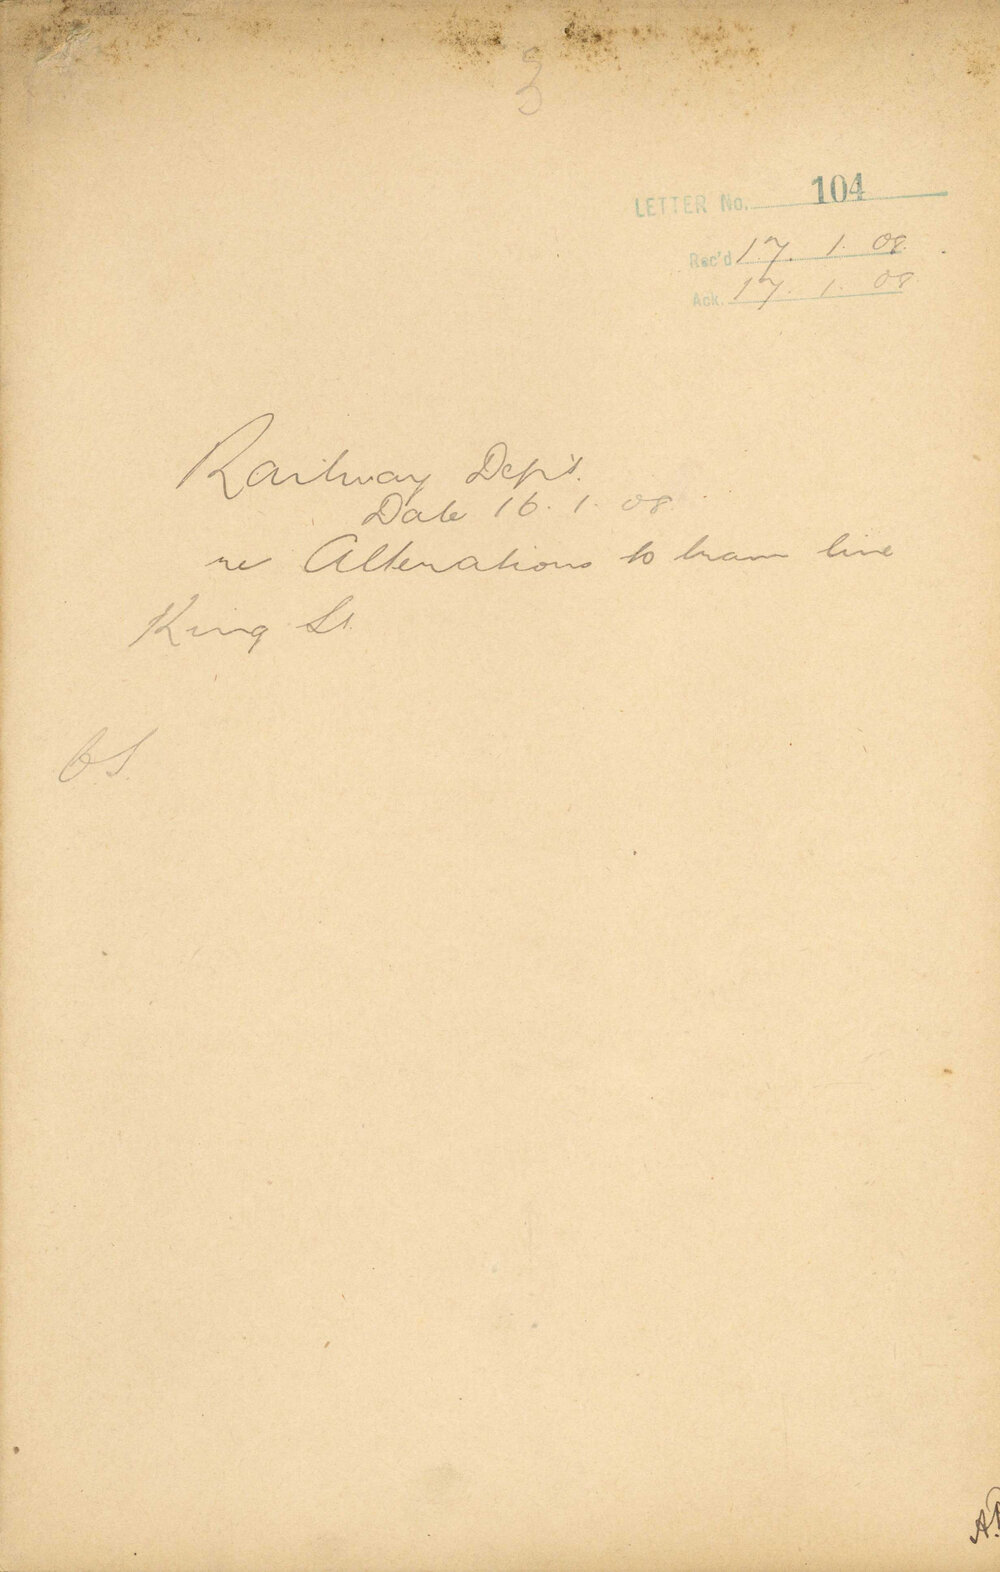 3
LETTER No. 104
Rec'd 17. 1. 08.
Ack. 17. 1. 08
Railway Dept.
Date 16. 1. 08.
re Alterations to tram line
King St.